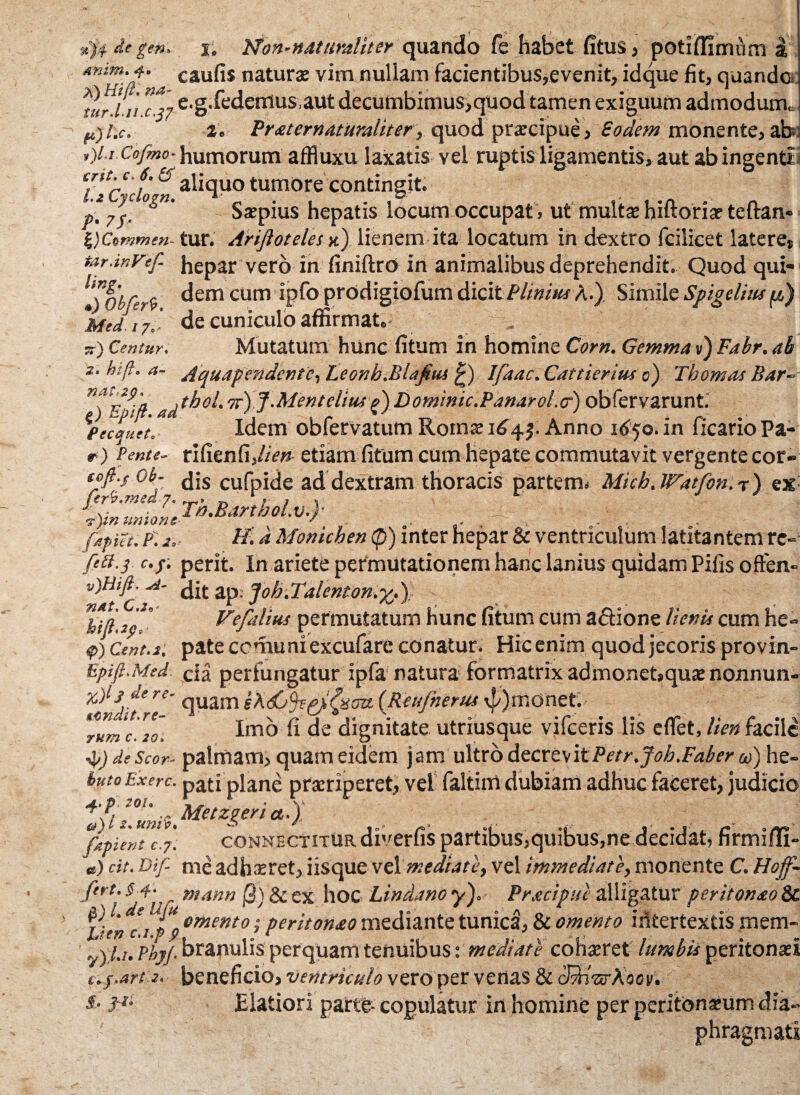 1. Non-naturaliter quando se habet situs, potissimùm à
causis naturæ vim nullam facientibus, evenit, idque fit, quando
e.g. sedemus aut decumbimus, quod tamen exiguum admodum.
2. Præternaturaliter, quod præcipuè, Eodem monente, ab
humorum affluxu laxatis vel ruptis ligamentis, aut ab ingenti
aliquo tumore contingit.
Sæpius hepatis locum occupat, ut multæ historiæ testan-
tur. Aristoteles κ) lienem ita locatum in dextro scilicet latere,
hepar verò in sinistro in animalibus deprehendit. Quod qui-
dem cum ipso prodigiosum dicit Plinius λ.) Simile Spigelius μ)
de cuniculo affirmat.
Mutatum hunc situm in homine Corn. Gemma ν) Fabr. ab
Aquapendente, Leonh. Blasius ξ) Isaac. Cattierius ο) Thomas Bar-
thol. π) J. Mentelius ρ) Dominic. Panarol. σ) observarunt.
Idem observatum Romæ 1643. Anno 1650. in sicario Pa-
risiensi, lien etiam situm cum hepate commutavit vergente cor-
dis cuspide ad dextram thoracis partem. Mich. Watson. τ) ex
Th. Barthol. υ.)
H. à Monichen φ) inter hepar & ventriculum latitantem re-
perit. In ariete permutationem hanc lanius quidam Pisis osten-
dit ap. Joh. Talenton. χ.)
Vesalius permutatum hunc situm cum actione lienis cum he-
pate communi excusare conatur. Hic enim quod jecoris provin-
cia perfungatur ipsa natura formatrix admonet, quæ nonnun-
quam (Reusnerus ψ) monet.
Imò si de dignitate utriusque visceris lis esset, lien facilè
palmam, quam eidem jam ultrò decrevit Petr. Joh. Faber ω) he-
pati planè præriperet, vel saltim dubiam adhuc faceret, judicio
Metzgeri α.)
CONNECTITUR diversis partibus, quibus, ne decidat, firmissi-
mè adhæret, iisque vel mediatè, vel immediatè, monente C. Hoff-
mann β) & ex hoc Lindano γ). Præcipuè alligatur peritonæo &
omento; peritonæo mediante tunicâ, & omento intertextis mem-
branulis perquam tenuibus: mediatè cohæret lumbis peritonæi
beneficio, ventriculo vero per venas & ἐπίπλοον.
Elatiori parte copulatur in homine per peritonæum dia-
phragmati
de gen.
anim. 4.
λ) Hist. na-
tur. l. 11. c. 37
μ) l. c.
ν) l. 1 Cosmo-
crit. c. 6. &
l. 2 Cyclogn.
p. 75.
ξ) Commen-
tar. in Ves-
ling.
ο) Observ.
Med. 17.
π) Centur.
2. hist. a-
nat. 29.
ρ) Epist. ad
Pecquet.
σ) Pente-
cost. 5 Ob-
serv. med 7.
τ) in unione
sapict. P. 2.
sect. 3 c. 5.
υ) Hist. A-
nat. C. 2.
hist. 29.
φ) Cent. 2.
Epist. Med
χ) l 3 de re-
condit. re-
rum c. 20.
ψ) de Scor-
buto Exerc.
4. p. 201.
ω) l 2. univ.
sapient c. 7.
α) cit. Dis-
sert. §. 4.
β) l. de Usu
Lien c. 1. p 9
γ) l. 1. Phys.
c. 5. art 2.
§. 31.